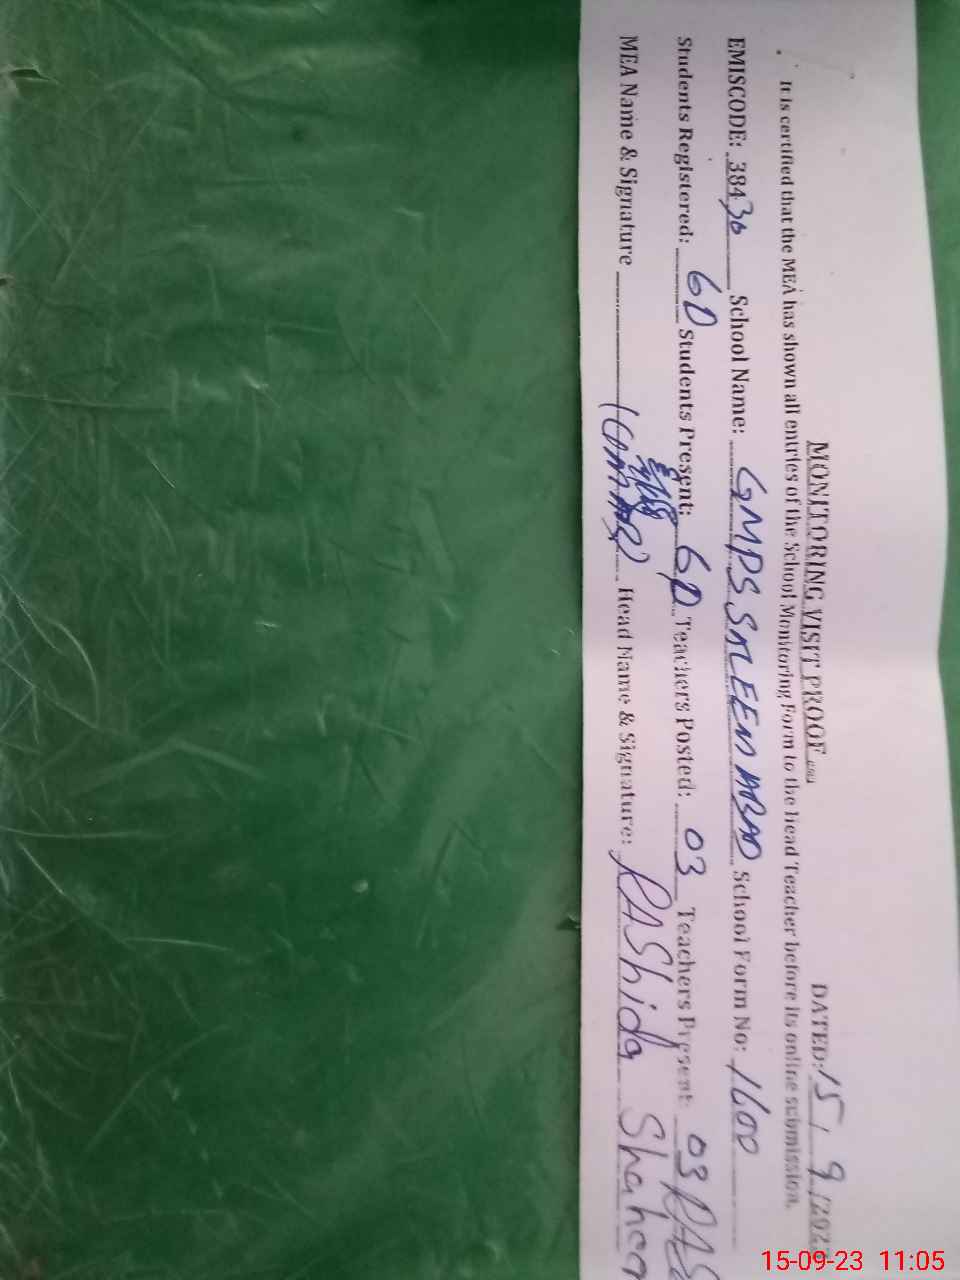 MONITORING VISIT PROOF DATED: 15/9/2023
It is certified that the MEA has shown all entries of the School Monitoring Form to the head Teacher before its online submission.
EMISCODE: 38430 School Name: GMPS SALEEM ABAD School Form No: 1600
Students Registered: 60 Students Present: 60 Teachers Posted: 03 Teachers Present: 03
MEA Name & Signature Head Name & Signature: RAShida Shaheen
15-09-23 11:05